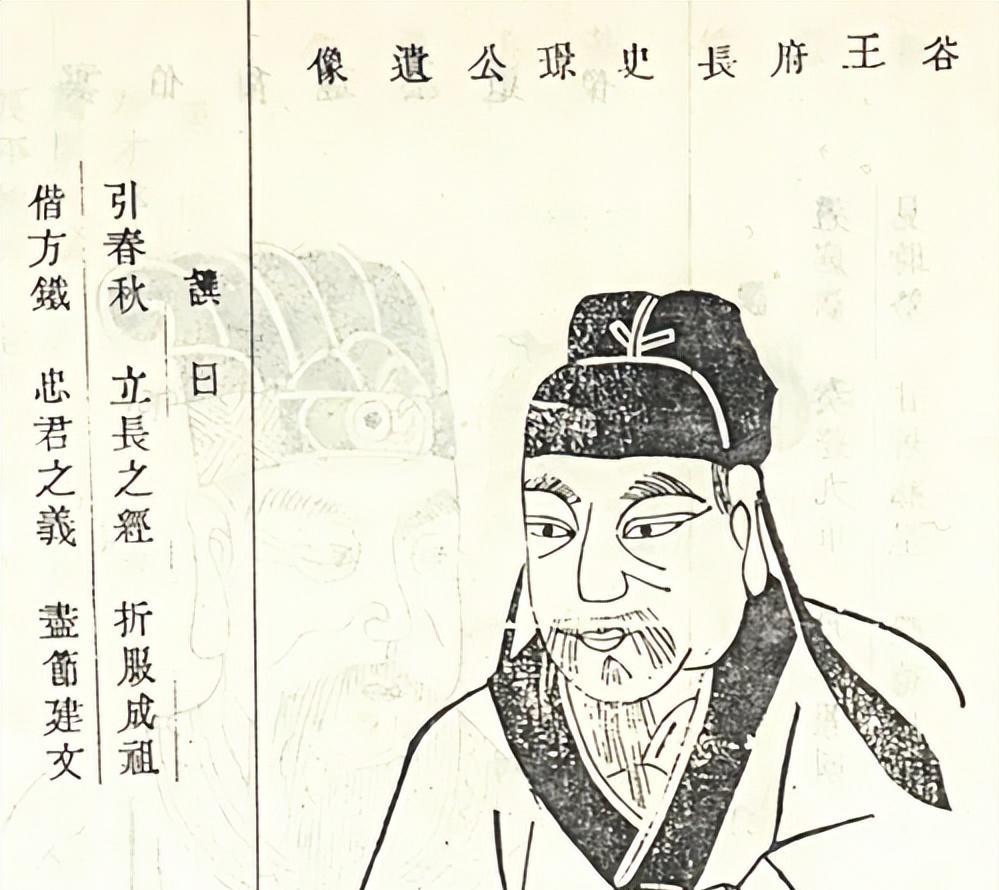 谷王府長史璟公遺像
譔曰
引春秋 立長之經 折服成祖
偕方鐵 忠君之義 盡節建文